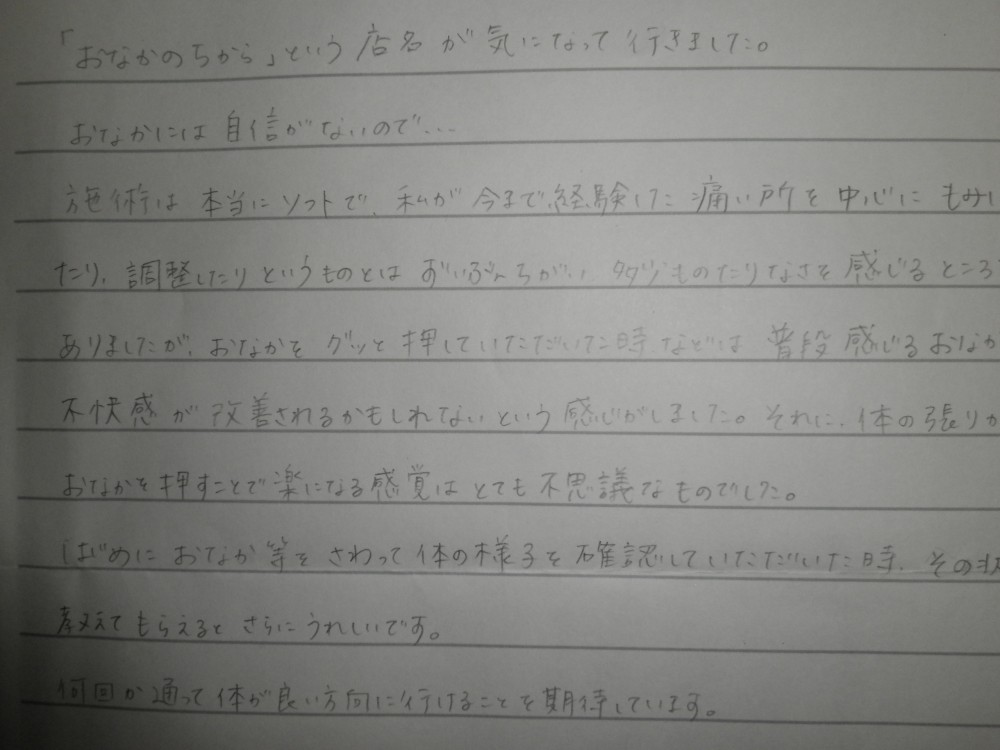 「おなかのちから」という店名が気になって行きました。
おなかには自信がないので…
施術は本当にソフトで、私が今まで経験した痛い所を中心にもみし
たり、調整したりというものとはずいぶんちがい、多少ものたりなさを感じるところ
ありましたが、おなかをグッと押していただいた時などは普段感じるおなか
不快感が改善されるかもしれないという感じがしました。それに、体の張りが
おなかを押すことで楽になる感覚はとても不思議なものでした。
はじめにおなか等をさわって体の様子を確認していただいた時、その状
教えてもらえるとさらにうれしいです。
何回か通って体が良い方向に行けることを期待しています。